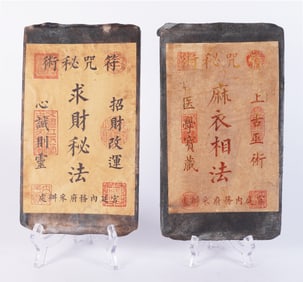 符咒秘術
招財改運
求財秘法
心誠則靈
宮廷內務府承辦處
符咒秘術
上古巫術
麻衣相法
醫學寶藏
宮廷內務府承辦處